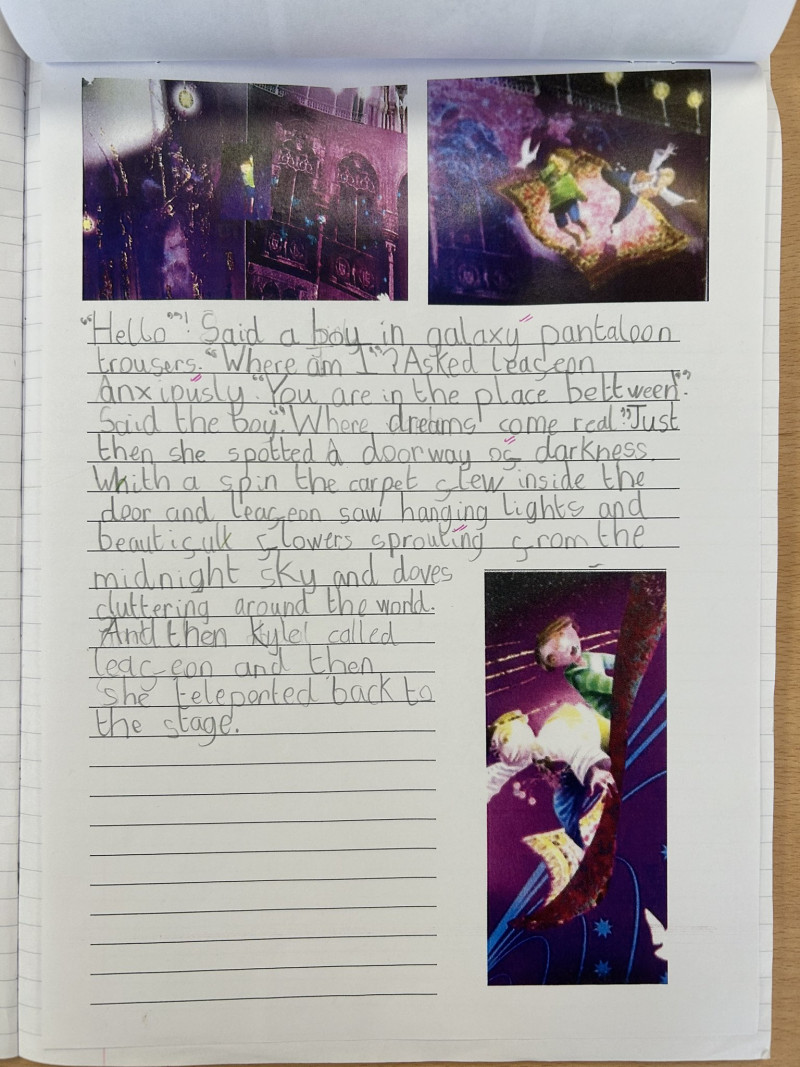 "Hello"! Said a boy in galaxy pantaloon
trousers. "Where am I"? Asked leafeon
anxiously. "You are in the place bettween".
Said the boy. "Where dreams come real." Just
then she spotted a doorway of darkness.
Whith a spin the carpet flew inside the
door and leafeon saw hanging lights and
beautifulk flowers sprouting from the
midnight sky and doves
cluttering around the world.
And then Kylel called
leaf-eon and then
she teleported back to
the stage.